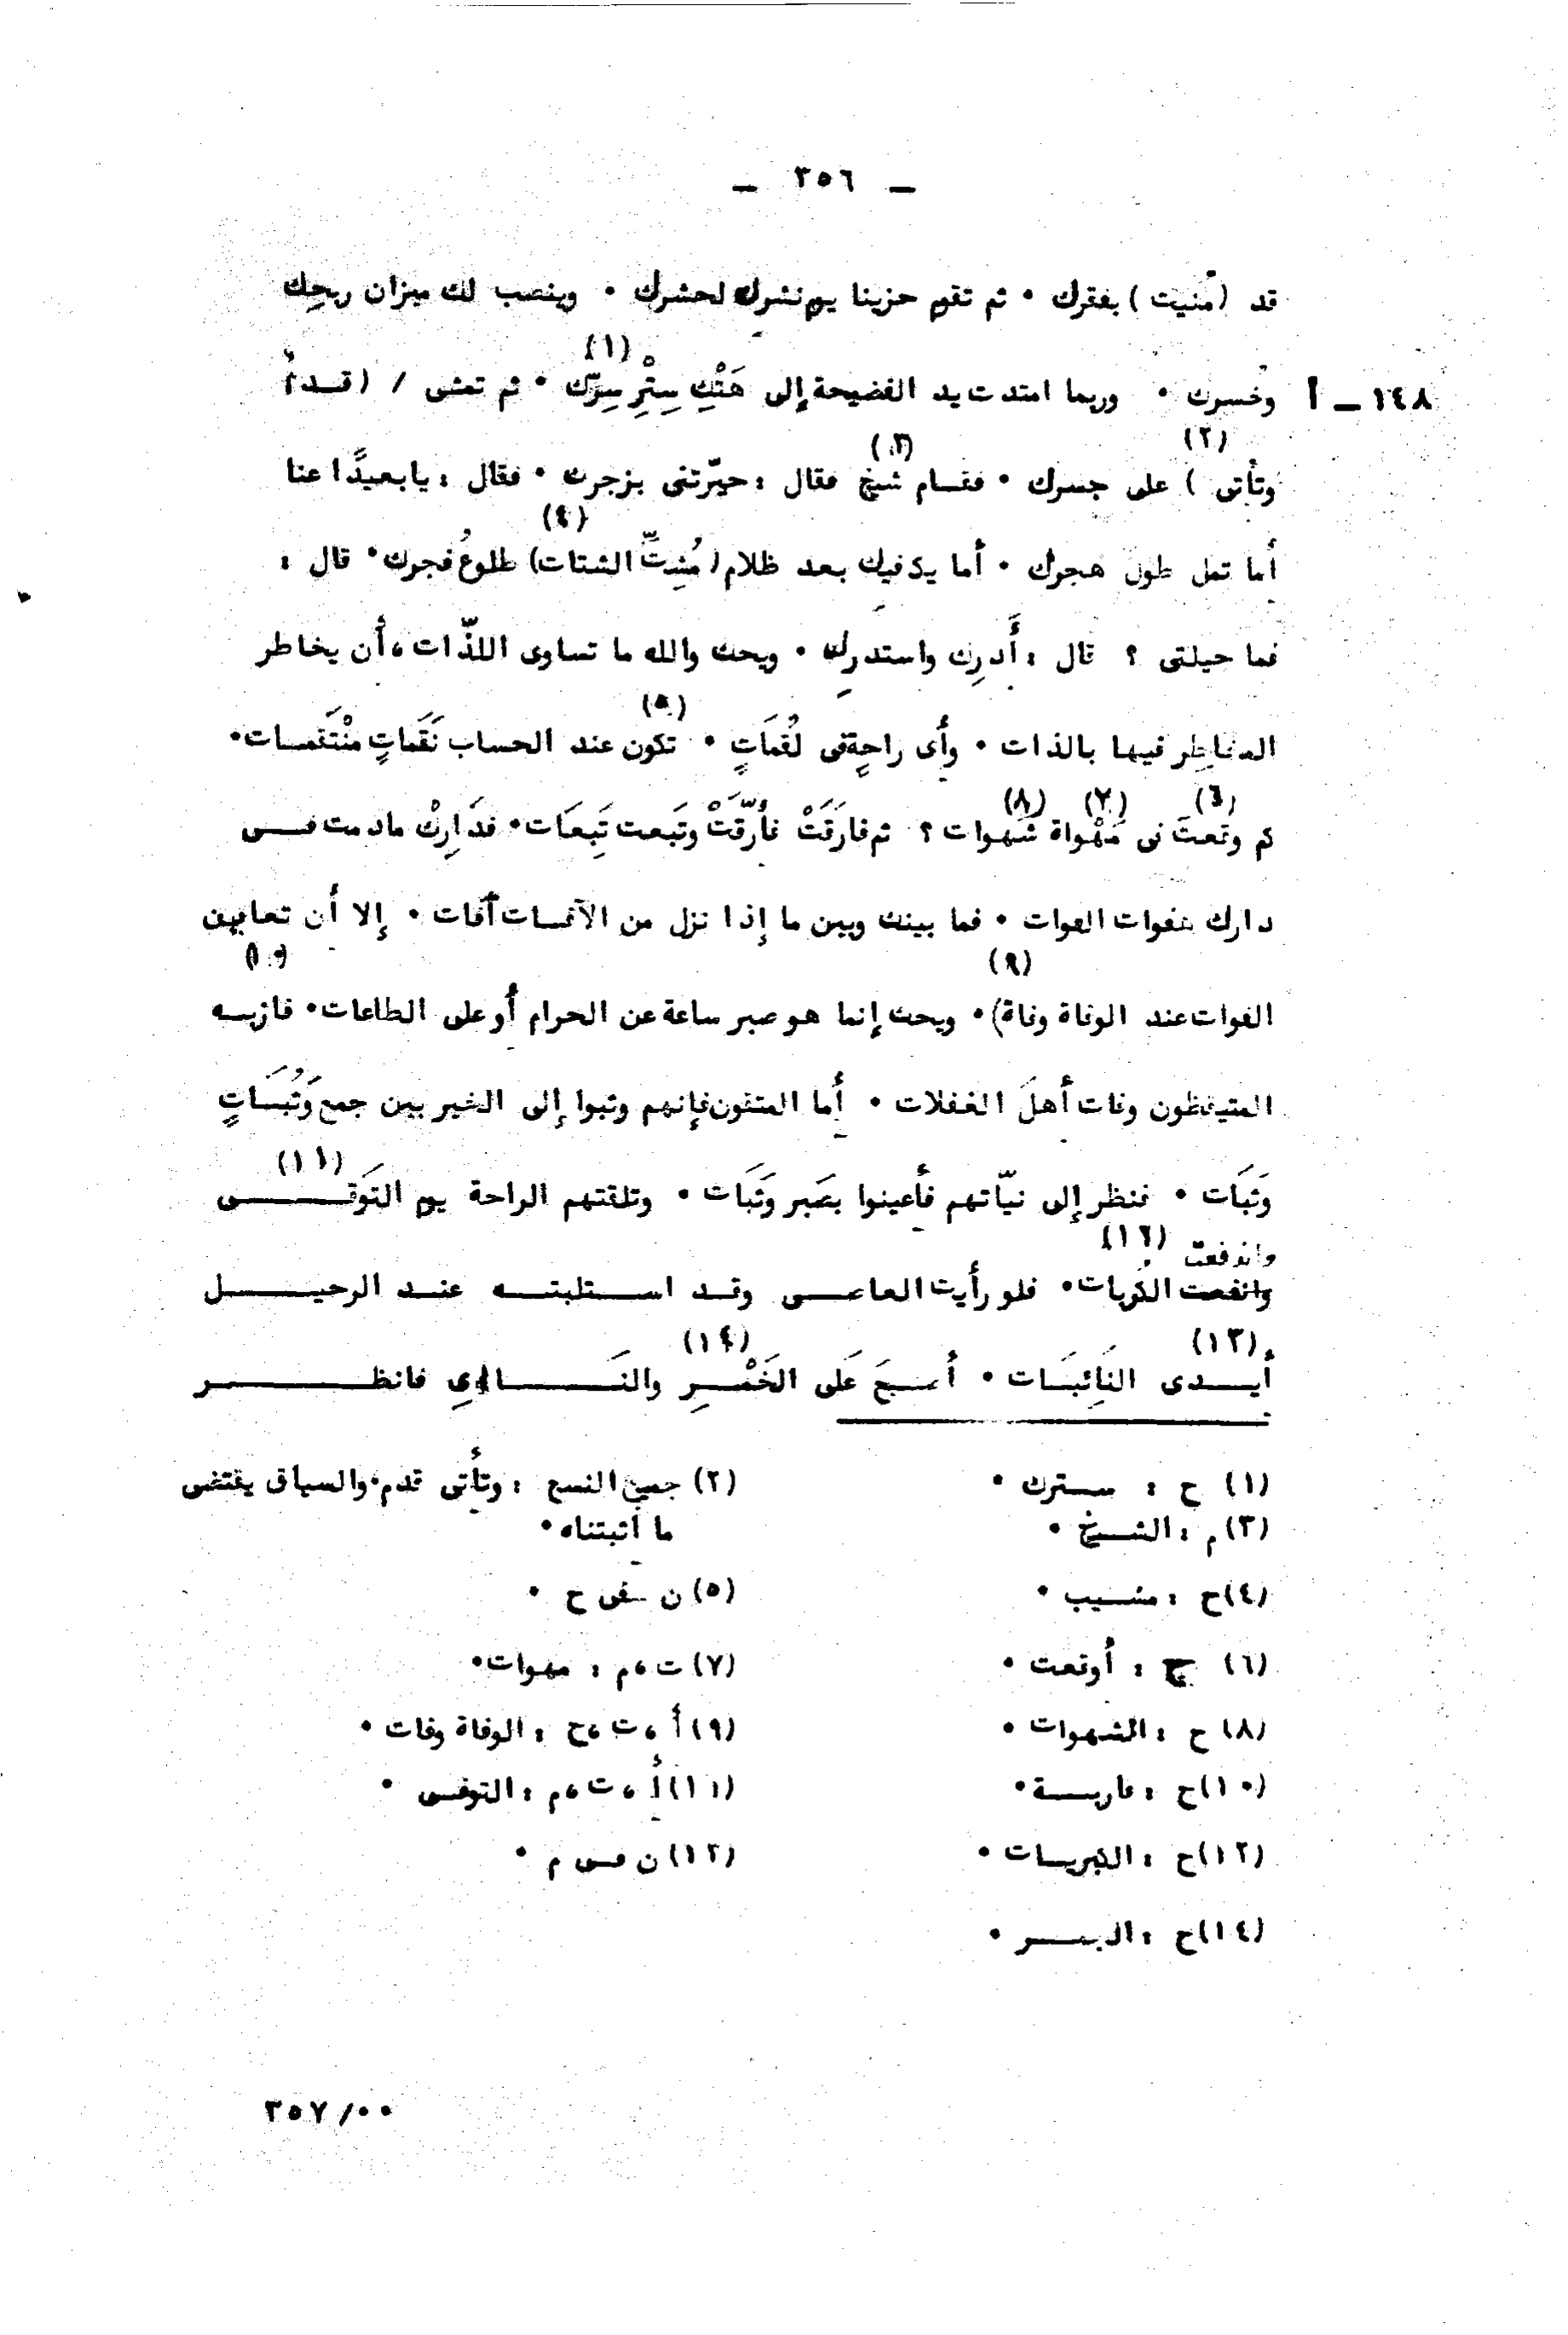 ـ ٣٥٦ ـ
قد (مُنيت) بفقرك ٠ ثم تقوم حزينا يوم نشرك لحشرك ٠ وينصب لك ميزان ربحك
١٤٨ ـ أ وخُسرك ٠ وربما امتدت يد الفضيحة إلى هَتْكِ سِتْرِ سِرّك (١) ٠ ثم تمشى / (قدمٌ
وتأبى) (٢) على جسرك ٠ فقام شيخ (٣) فقال : حيّرتنى بزجرك ٠ فقال : يا بعيدًا عنا
أما تمل طول هجرك ٠ أما يكفيك بعد ظلام (مُشِتِّ الشتات) (٤) طلوعُ فجرك ٠ قال :
فما حيلتى ؟ قال : أَدرِك واستدرِك ٠ ويحك والله ما تساوى اللذّات ، أن يخاطر
المخاطِر فيها بالذات ٠ وأى راحةٍ فى لُقمَاتٍ ٠ تكون (٥) عند الحساب نَقَماتٍ منْتَقمات ٠
كم وقعتَ (٦) فى مَهْواة (٧) شَهوات (٨) ؟ ثم فارَقَتْ فأرّقَتْ وتَبعت تَبِعَات ٠ فدَارِكْ ما دمت فى
دارك هفوات الفوات ٠ فما بينك وبين ما إذا نزل من الآفات آفات ٠ إلا أن تعاين
الفوات عند الوفاة وفاة) (٩) ٠ ويحك إنما هو صبر ساعة عن الحرام أو على الطاعات ٠ فاز به (١٠)
المتيقظون وفات أهلَ الغفلات ٠ أما المتقون فإنهم وثبوا إلى الخير بين جمع وَثُبَاتٍ
وَثبَات ٠ فنظر إلى نيّاتهم فأعينوا بصَبر وَثبَات ٠ وتلقتهم الراحة يوم التَوقى (١١)
واندفعت
الكربات (١٢) ٠ فلو رأيت العاصى وقد استلبته عند الرحيل
أيدى (١٣) النَائِبَات ٠ أصبحَ عَلى الخَمْرِ (١٤) فانظر
(١) ح : سترك ٠
(٢) جميع النسخ : وتأبى قدم ٠ والسياق يقتضى
ما أثبتناه ٠
(٣) م : الشيخ ٠
(٤) ح : مشيب ٠
(٥) ن ـ فى ح ٠
(٦) ح : أوقعت ٠
(٧) ت ، م : مهوات ٠
(٨) ح : الشهوات ٠
(٩) أ ، ت ، ح : الوفاة وفات ٠
(١٠) ح : فاربة ٠
(١١) أ ، ت ، م : التوفى ٠
(١٢) ح :
(١٣) ن فى م ٠
(١٤) ح :
٣٥٧/٠٠